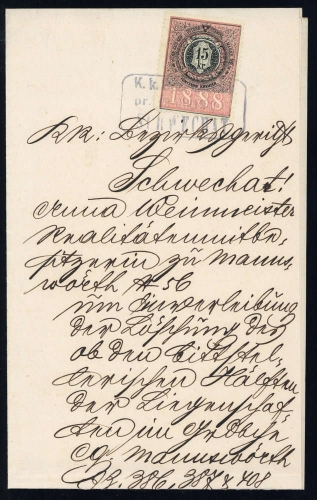 15
kr
1888
K. k.
pr.
KK: Bezirksgericht
Schwechat!
Anna Weinmeister
Realitätenmitbe,
sitzerin zu Manns,
wörth # 56
um Einverleibung
der Löschung des
ob den bittstel,
lerischen Hälften
der Liegenschaf,
ten im Grdbche
CG Mannswörth
EZ. 386, 387 & 408